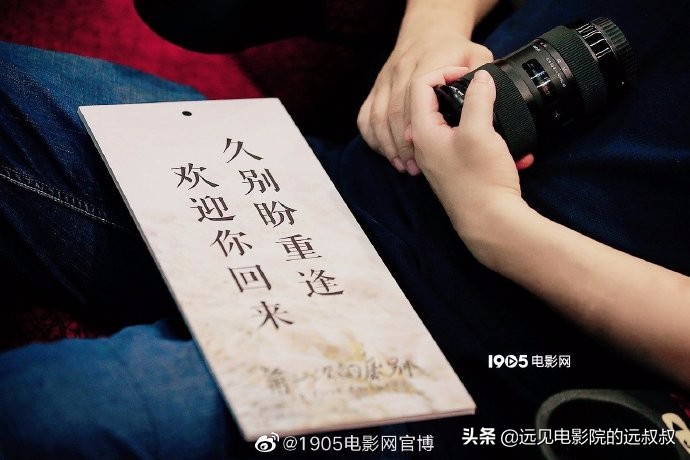 久别盼重逢
欢迎你回来
第一次的离别
1905电影网
@1905电影网官博
头条 @远见电影院的远叔叔